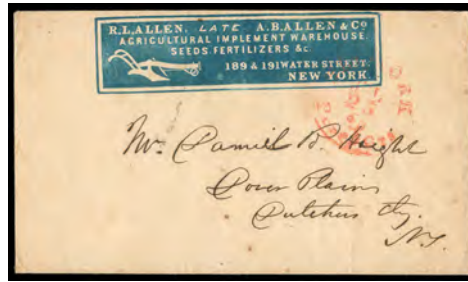 R.L.ALLEN, LATE A.B.ALLEN & Co
AGRICULTURAL IMPLEMENT WAREHOUSE.
SEEDS FERTILIZERS &c.
189 & 191 WATER STREET.
NEW YORK.
Mr. Daniel B. Haight
Dover Plains
Dutchess Cty.
N.Y.